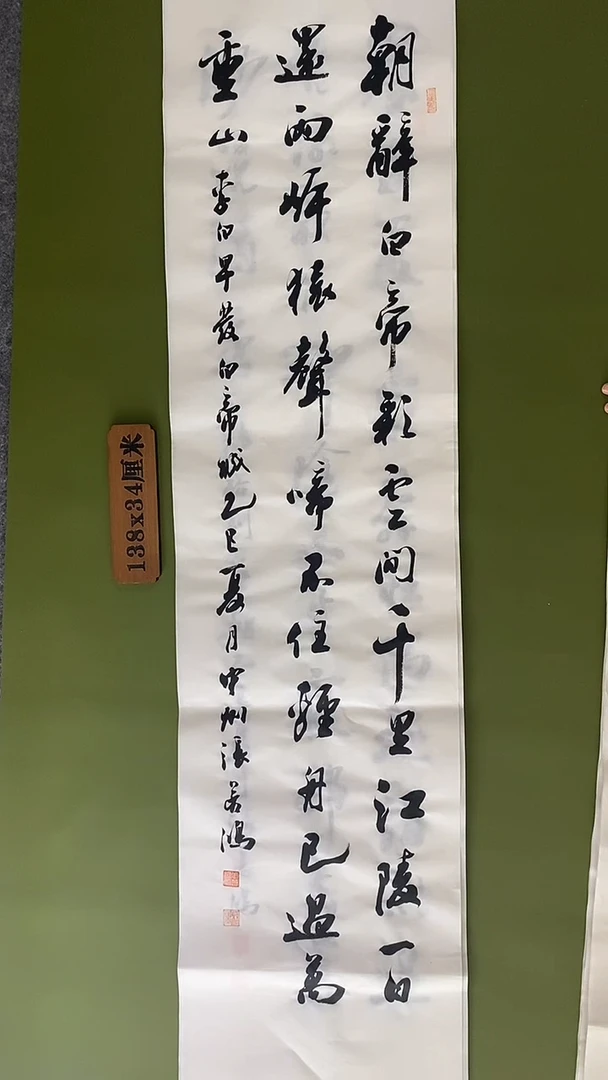 朝辭白帝彩雲間千里江陵一日
還兩岸猿聲啼不住輕舟已過萬
重山 李白早發白帝城乙巳夏月中州張若鴻
138x34厘米